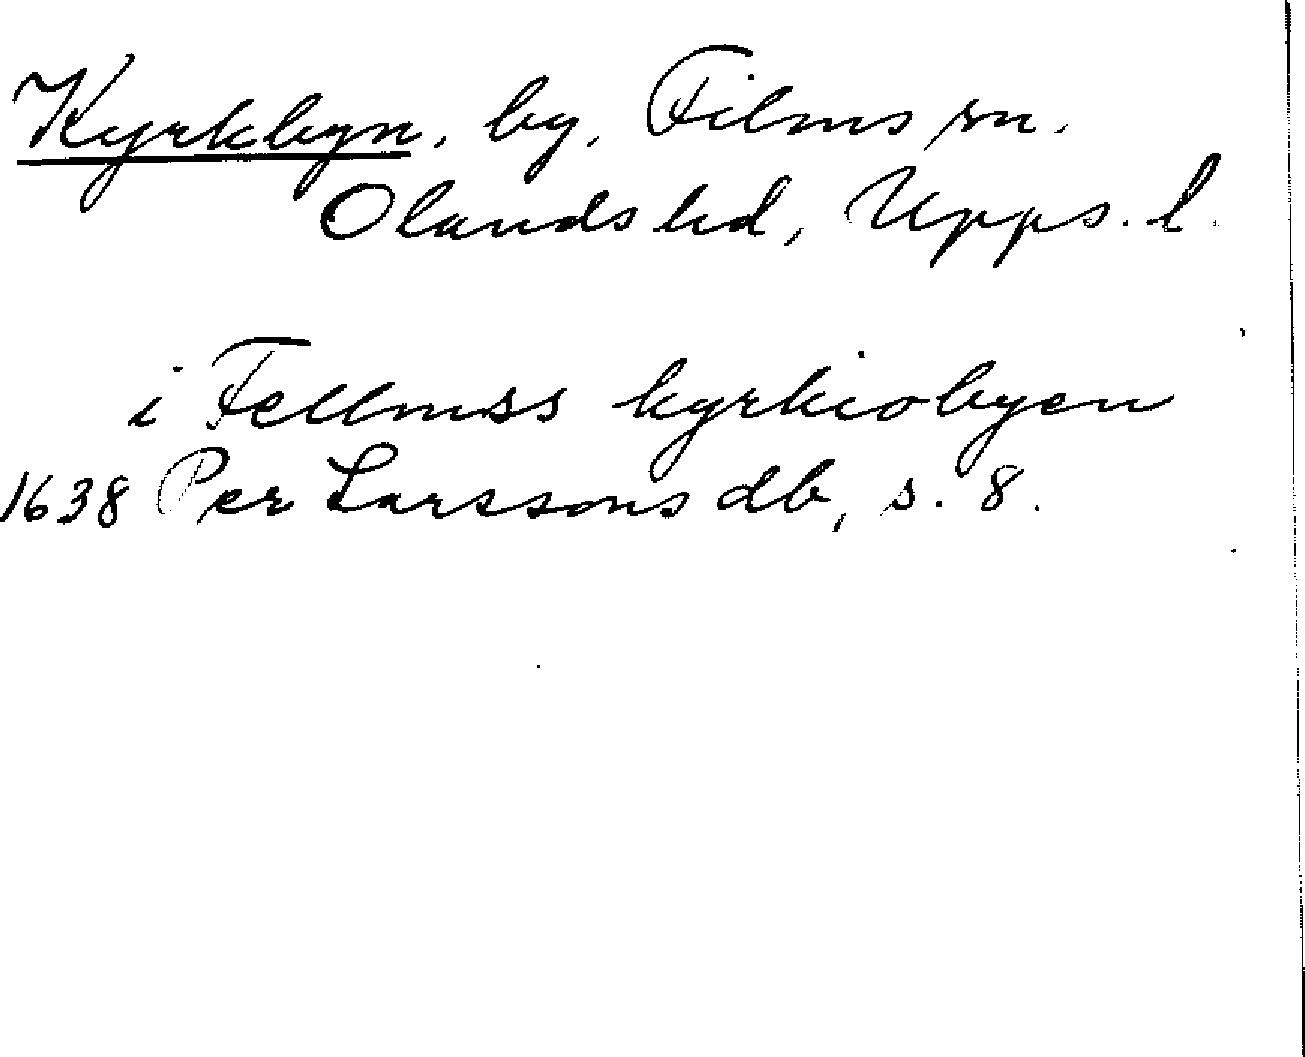 Kyrkbyn, by, Films sn.
Olands hd, Upps. l.
i Fellmss kyrkiobyen
1638 Per Larssons db, s. 8.